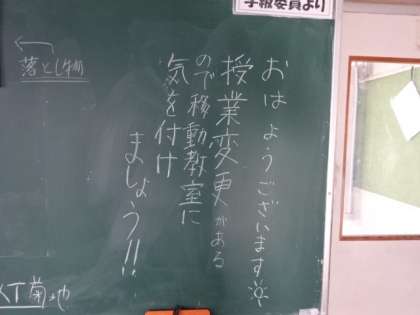 学級委員より
おはようございます
授業変更がある
ので移動教室に
気を付け
ましょう!!
落とし物
KT 菊池